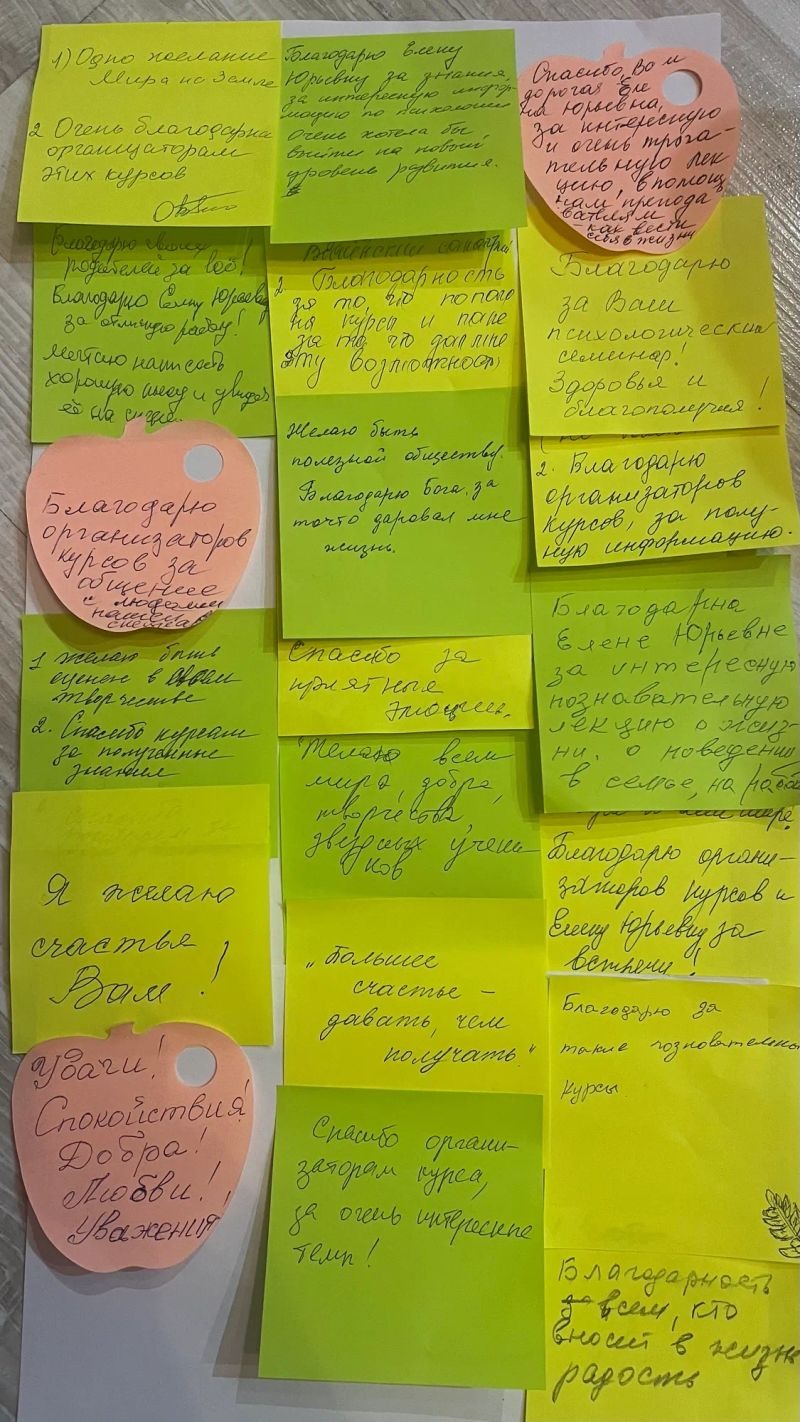 1) Одно желание
Мира на Земле
2 Очень благодарна
организаторам
этих курсов
Благодарю своих
родителей за всё!
Благодарю Елену Юрьевну
за отличную работу!
Мечтаю написать
хорошую и увидеть
её на сцене.
Благодарю
организаторов
курсов за
общение
с людьми
1 желаю быть
оценен в своем
творчестве
2. Спасибо курсам
за полученные
знания
Я желаю
счастья
Вам!
Удачи!
Спокойствия!
Добра!
Любви!
Уважения
Благодарю Елену
Юрьевну за знания,
за интересную инфор-
мацию по психологии
очень хотела бы
выйти на новый
уровень развития.
2. Благодарность
за то, что попала
на курсы и папе
за то что дал мне
эту возможность
Желаю быть
полезной обществу.
Благодарю Бога, за
то что даровал мне
жизнь.
Спасибо за
приятные
эмоции.
Желаю всем
мира, добра,
творчества,
звездных учени
ков
„Большее
счастье –
давать, чем
получать."
Спасибо органи-
заторам курса,
за очень интересные
темы!
Спасибо Вам
дорогая Еле
на Юрьевна,
за интересную
и очень трога-
тельную лек
цию, в помощь
нам препода
вателям
- как вести
себя в жизни
Благодарю
за Ваш
психологический
семинар!
Здоровья и
благополучия!
2. Благодарю
организаторов
курсов, за полу-
ную информацию.
Благодарна
Елене Юрьевне
за интересную
познавательную
лекцию о жиз-
ни, о поведении
в семье, на работе
Благодарю органи-
заторов курсов и
Елену Юрьевну за
встречи!
Благодарю за
такие познавательные
курсы.
Благодарность
за всем, кто
вносит в жизнь
радость